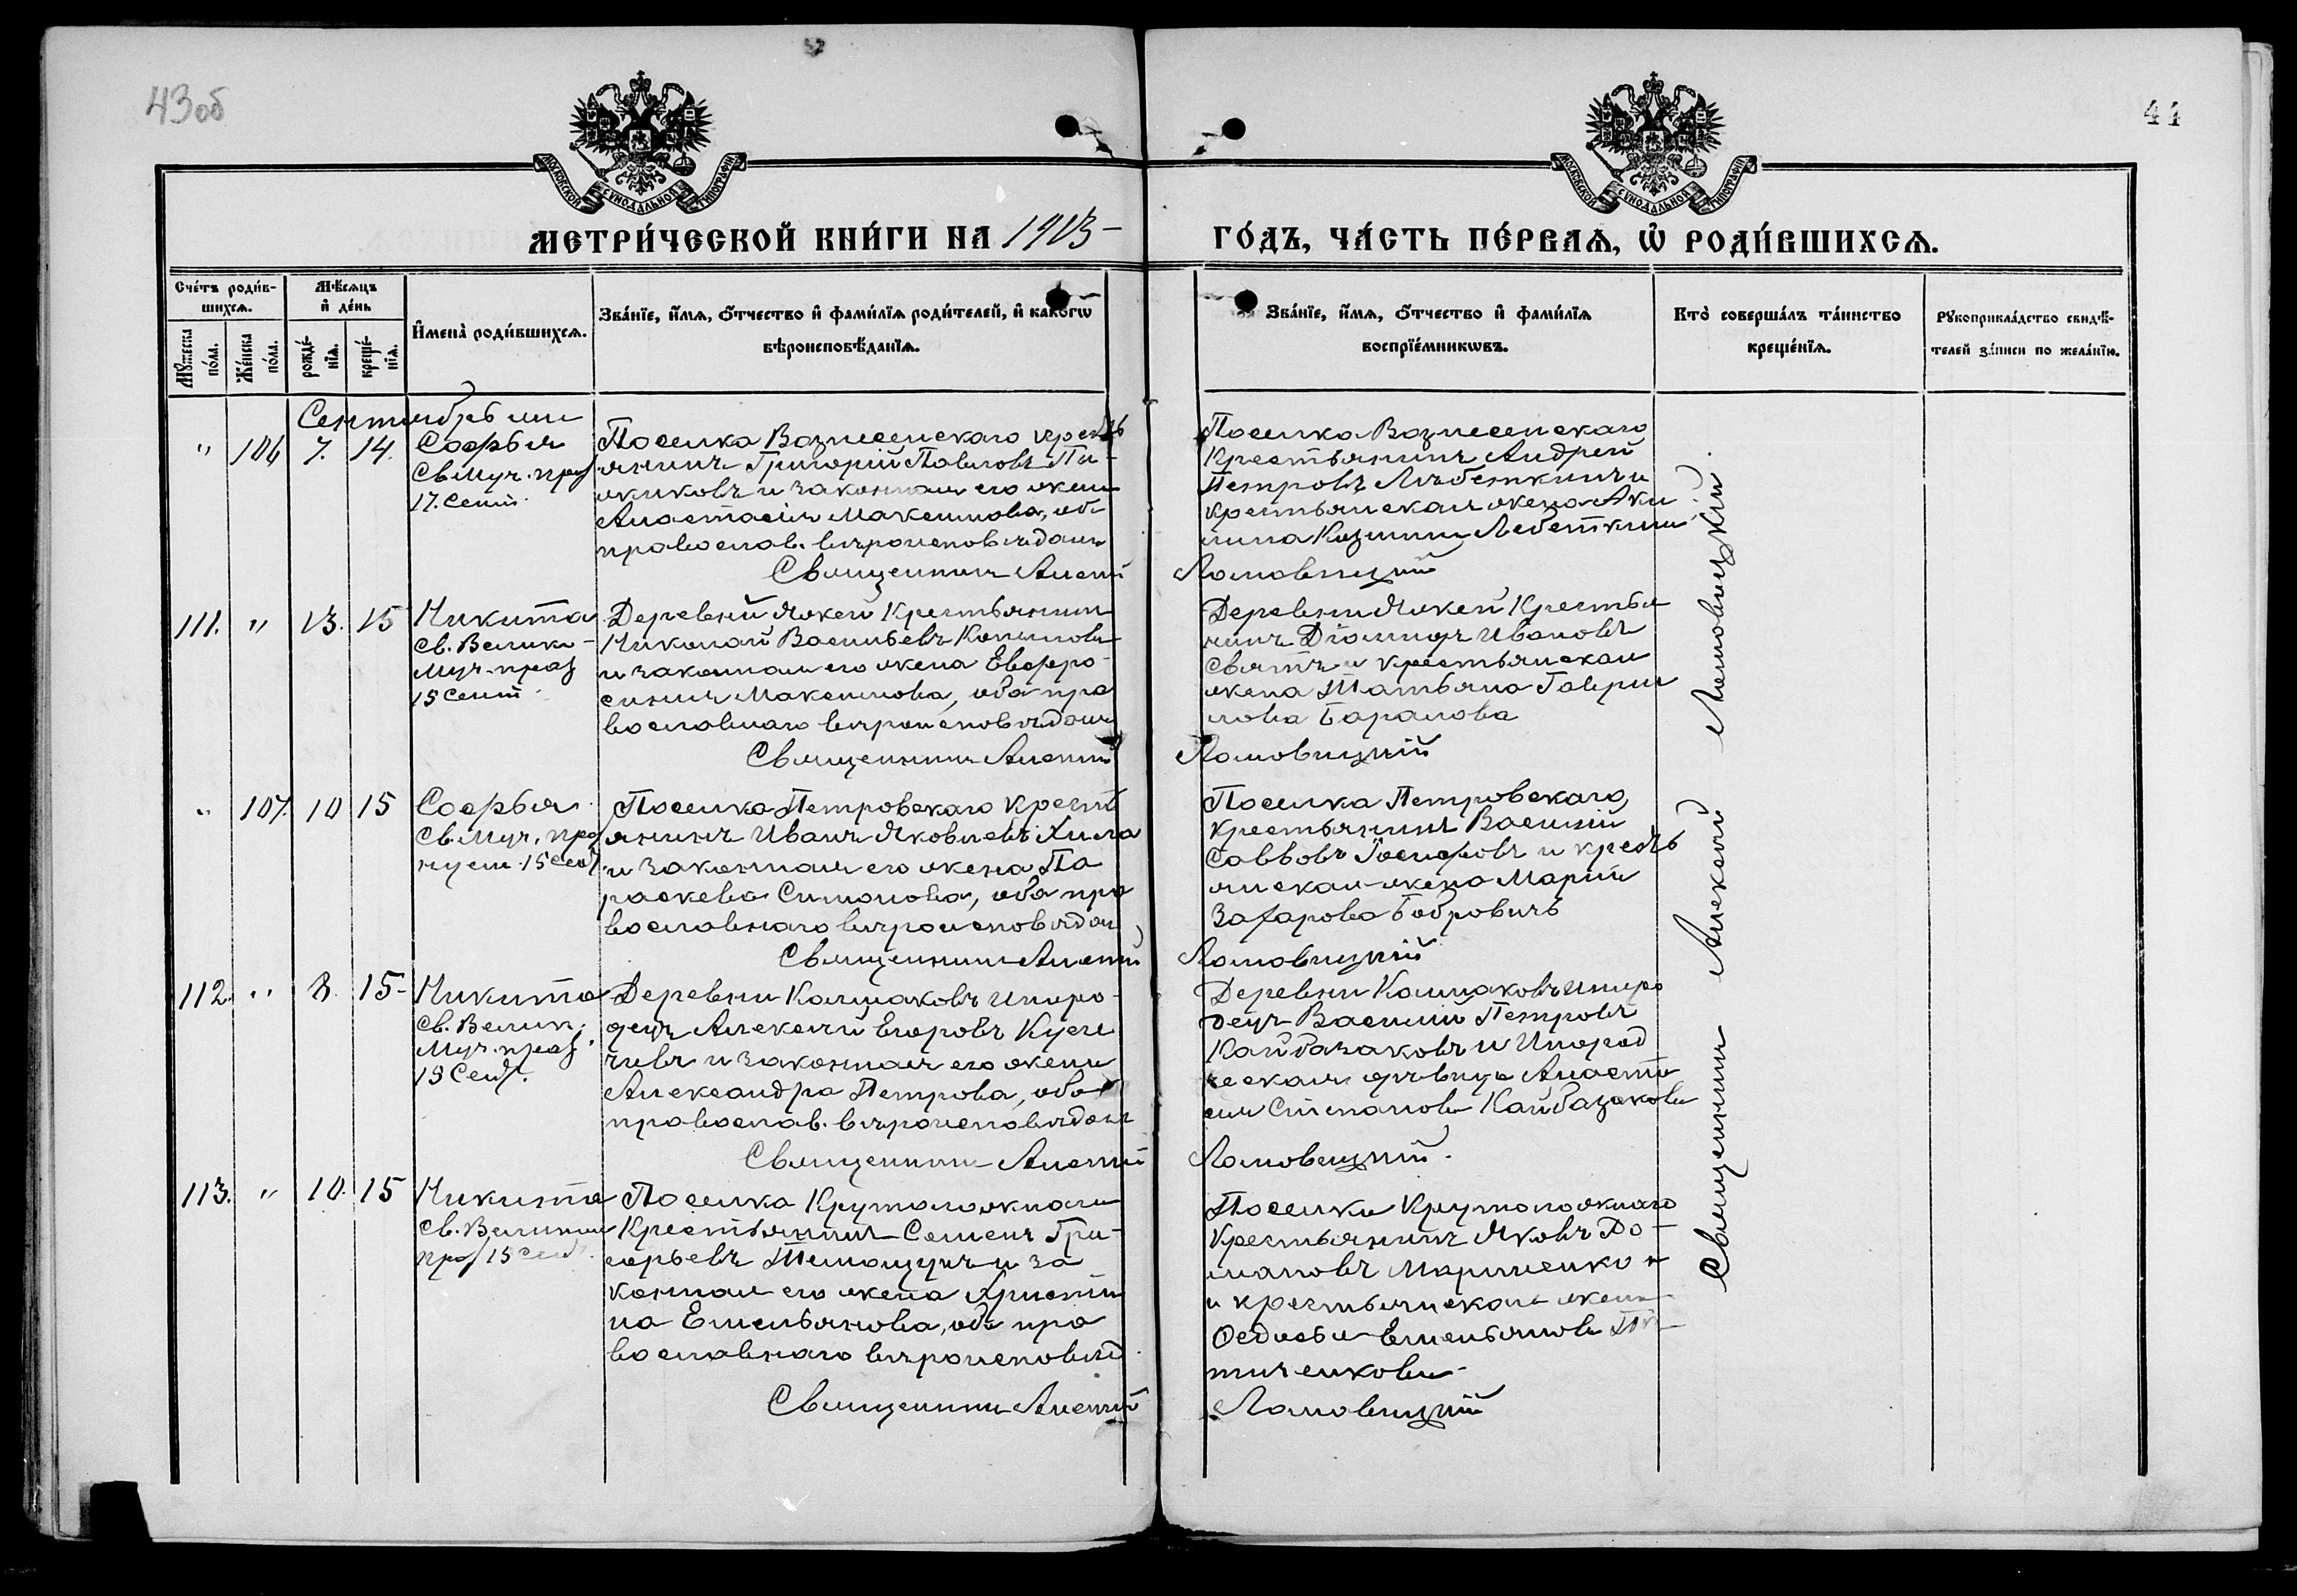 43об
44
МОСКОВСКОЙ СѴНОДАЛЬНОЙ ТИПОГРАФІИ
МОСКОВСКОЙ СѴНОДАЛЬНОЙ ТИПОГРАФІИ
МЕТРИ́ЧЕСКОЙ КНИ́ГИ НА 1913
ГО́ДЪ, ЧА́СТЬ ПЕ́РВАѦ, Ѡ҆ РОДИ́ВШИХСѦ.
Сче́тъ роди́в-
шихсѧ.
Мꙋ́жеска по́ла.
Же́нска по́ла.
Мѣ́сѧцъ
и҆ де́нь
рожде́-нїѧ.
креще́-нїѧ.
И҆мена̀ роди́вшихсѧ.
Зва́нїе, и҆́мѧ, ѻ҆́тчество и҆ фами́лїѧ роди́телей, и҆ како́гѡ
вѣроисповѣ́данїѧ.
Зва́нїе, и҆́мѧ, ѻ҆́тчество и҆ фами́лїѧ
воспрїе́мникѡвъ.
Кто̀ соверша́лъ та́инство
креще́нїѧ.
Рꙋкоприкла́дство свидѣ́-
телей за́писи по жела́нїю.
Сентябрь
" 106 7. 14. Софья
Св. Муч. праз
17. Сент.
Поселка Вознесенскаго крест
янинъ Григорій Павловъ
и законная его жена
Анастасія Максимова, об
православ. вѣроисповѣдан
Священникъ Алексій
Поселка Вознесенскаго
Крестьянинъ Андрей
Петровъ и
крестьянская жена Аки
лина Козмина
Ломовицкій
111. " 13. 15 Никита
Св. Велико-
муч. праз
15 Сент
Деревни Яжей Крестьянин
Николай Васильевъ
и законная его жена Евфро-
синия Максимова, оба пра
вославнаго вѣроисповѣдан
Священникъ Алексій
Деревни Яжей Крестья
нинъ Ивановъ
и крестьянская
жена Татьяна Гаври
лова Баранова
Ломовицкій
" 107. 10 15 Софья
Св. Муч. праз
15 Сент.
Поселка Петровскаго Крест
янинъ Иванъ Яковлевъ
и законная его жена Па
раскева Симонова, оба пра
вославнаго вѣроисповѣдан
Священникъ Алексій
Поселка Петровскаго,
Крестьянинъ Василій
Саввовъ Іосифовъ и кресть
янская жена Марія
Захарова Бобровичъ
Ломовицкій
112. " 8. 15 Никита
Св. Велик.
Муч. праз.
15 Сент.
Деревни Калмаковъ Иноро-
децъ Алексѣй Егоровъ
и законная его жена
Александра Петрова, оба
православ. вѣроисповѣдан
Священникъ Алексій
Деревни Калмаковъ Иноро
децъ Василій Петровъ
Кайбазаковъ и Инород
ческая дѣвица Анаста
сия Степанова Кайбазакова
Ломовицкій.
113. " 10. 15 Никита
Св. Великом
праз 15 Сент.
Поселка Крутоложнаго
Крестьянинъ Семенъ Гри-
горьевъ и за
конная его жена Христи
на Емельянова, оба пра
вославнаго вѣроисповѣд
Священникъ Алексій
Поселка Крутоложнаго
Крестьянинъ Яковъ
и крестьянская жена
Федосья Емельянова
Ломовицкій
Священникъ Алексій Ломовицкій.